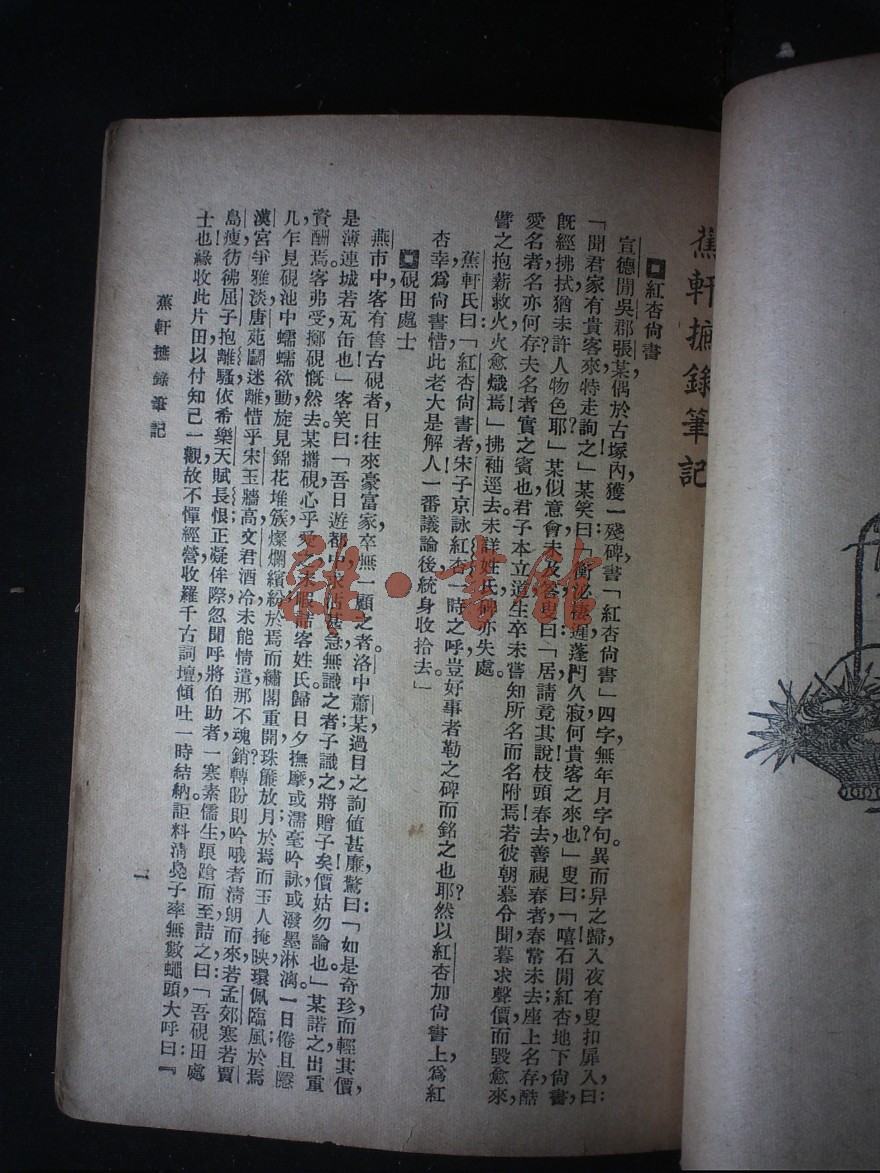 蕉軒摭錄筆記
紅杏尙書
宣德間吳郡張某偶於古塚內獲一殘碑書「紅杏尙書」四字無年月字句。異而舁之歸入夜有叟扣扉入曰：
「聞君家有貴客來特走詢之」某笑曰：「衡泌棲遲蓬門久寂何貴客之來也」叟曰：「嘻石閒紅杏地下尙書，
旣經拂拭猶未許人物色耶？」某似意會未及答叟曰：「居請竟其說枝頭春去善視春者春常未去座上名存酷
愛名者名亦何存夫名者實之賓也君子本立道生卒未嘗知所名而名附焉若彼朝慕令聞暮求聲價而毀愈來，
譬之抱薪救火火愈熾焉！」拂袖逕去。未詳姓氏碑亦失處。
蕉軒氏曰：「紅杏尙書者宋子京詠紅杏一時之呼豈好事者勒之碑而銘之也耶？然以紅杏加尙書上爲紅
杏幸爲尙書惜此老大是解人一番議論後統身收拾去。」
硯田處士
燕市中客有售古硯者日往來豪富家卒無一顧之者。洛中蕭某過目之詢值甚廉驚曰：「如是奇珍而輕其價，
是薄連城若瓦缶也！」客笑曰：「吾日遊都中求沽甚急無識之者子識之將贈子矣價姑勿論也。」某諾之出重
資酬焉客弗受擲硯慨然去。某攜硯心乎愛之未暇詰客姓氏歸日夕撫摩或濡毫吟詠或潑墨淋漓。一日倦且隱
几乍見硯池中蠕蠕欲動旋見錦花堆簇燦爛繽紛於焉而繡閣重開珠簾放月於焉而玉人掩映環佩臨風於焉
漢宮爭雅淡唐苑鬭迷離惜乎宋玉牆高文君酒冷未能情遣那不魂銷？轉盼則吟哦者淸朗而來若孟郊寒若賈
島瘦彷彿屈子抱離騷依希樂天賦長恨正凝眸際忽聞呼將伯助者一寒素儒生踉蹌而至詰之曰：「吾硯田處
士也緣收此片田以付知己一觀故不憚經營收羅千古詞壇傾吐一時結納詎料淸臯子率無數蠅頭大呼曰：『
蕉軒摭錄筆記
一
雜·書館